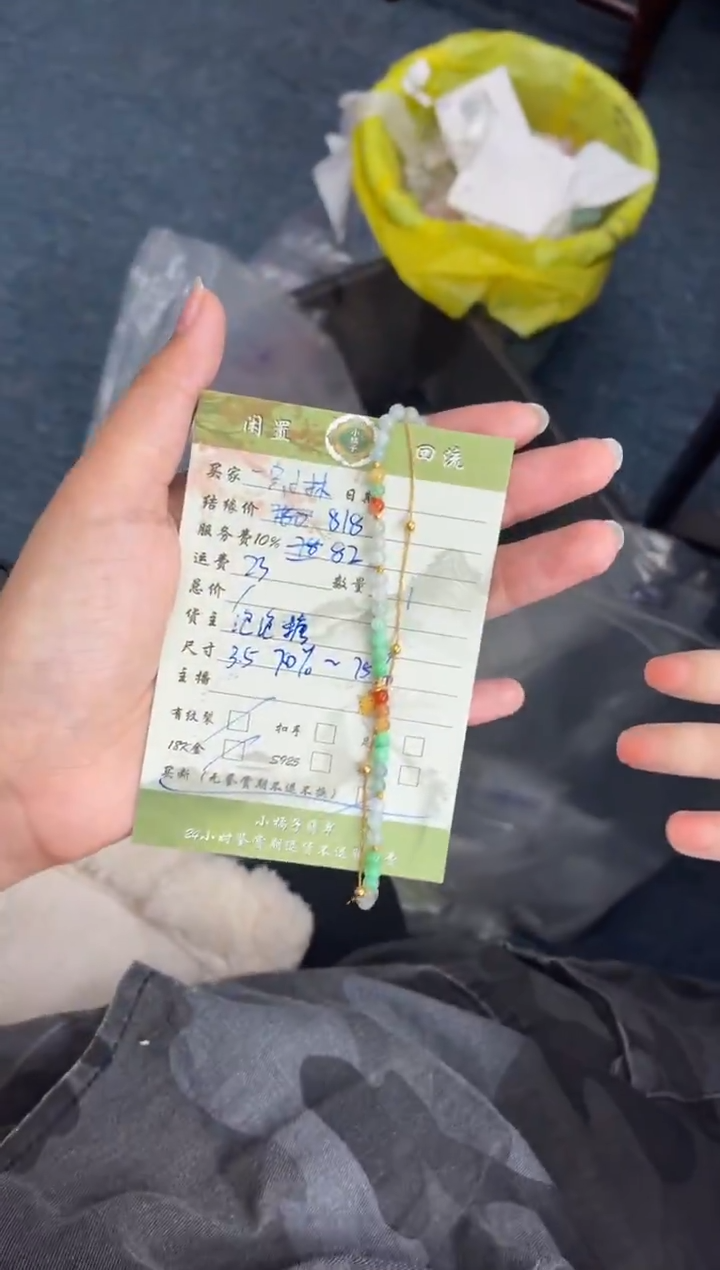 闲置 小橘子 回流
买家 一宗小林 日期
结缘价 818
服务费10% 82
运费 23 数量 1
总价 /
货主 泡泡糖
尺寸 3.5 70% ~ 75
主播
有纹裂 扣耳
18K金 S925
买断(无鉴赏期不退不换)
小橘子翡翠
24小时鉴赏期退货不退